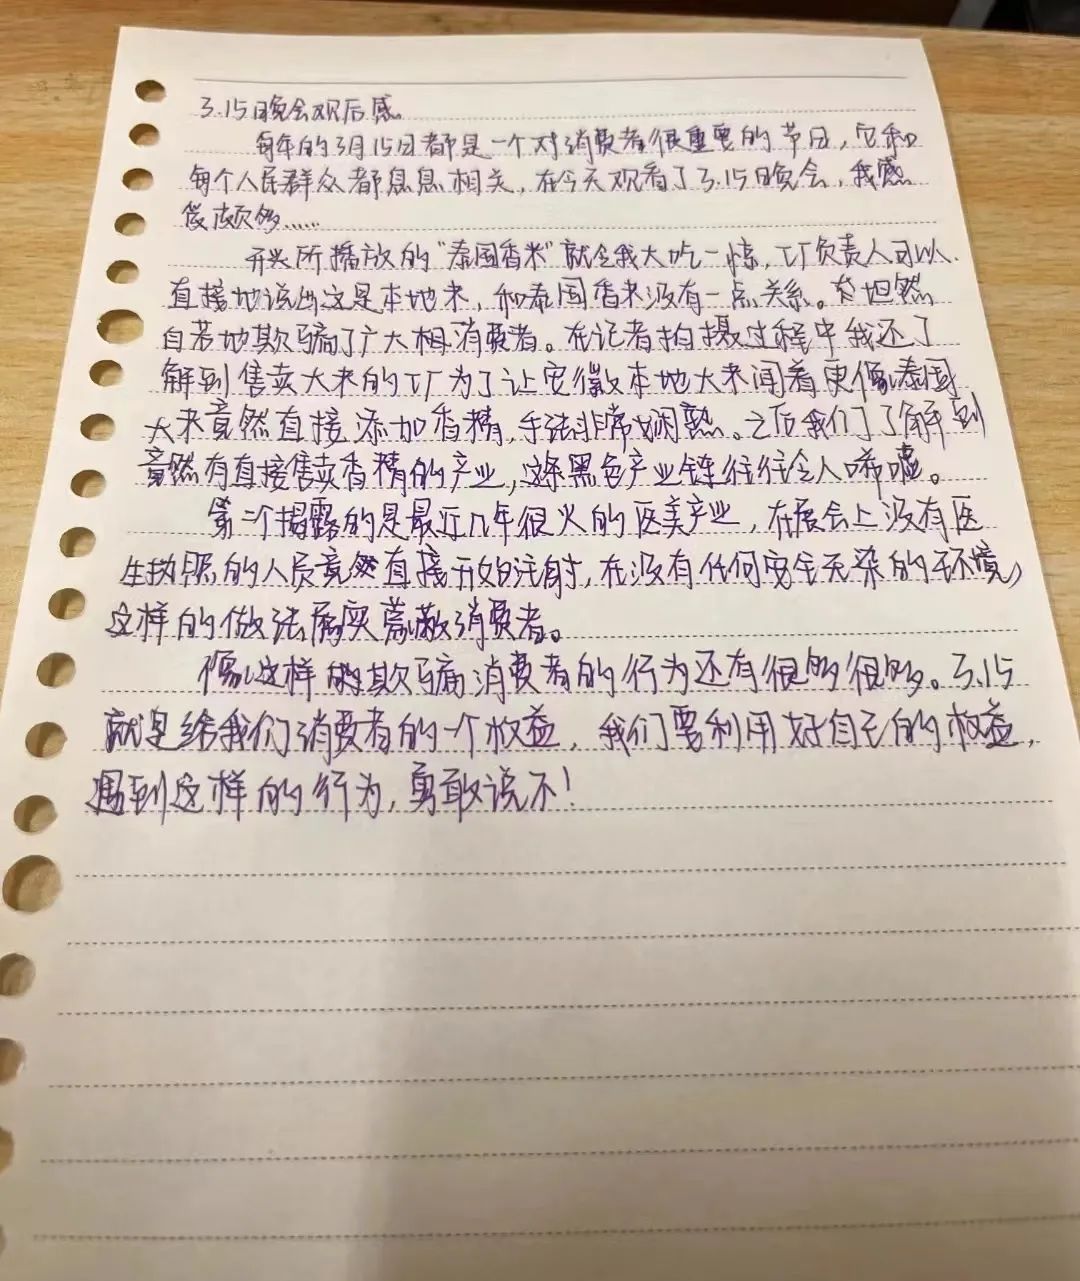 3.15晚会观后感
每年的3月15日都是一个对消费者很重要的节日，它和
每个人民群众都息息相关，在今天观看了3.15晚会，我感
受颇多……
开头所播放的“泰国香米”就令我大吃一惊，工厂负责人可以
直接地说出这是本地米，和泰国香米没有一点关系。坦然
自若地欺骗了广大相消费者。在记者拍摄过程中我还了
解到售卖大米的工厂为了让它做本地大米闻着更像泰国
大米竟然直接添加香精，手法非常娴熟。之后我们了解到
竟然有直接售卖香精的产业，这条黑色产业链往往令人唏嘘。
第二个揭露的是最近几年很火的医美产业，在展会上没有医
生执照的人员竟然直接开始注射，在没有任何安全无杂的环境，
这样的做法属实蒙蔽消费者。
像这样的欺骗消费者的行为还有很多很多。3.15
就是给我们消费者的一个权益，我们要利用好自己的权益，
遇到这样的行为，勇敢说不！